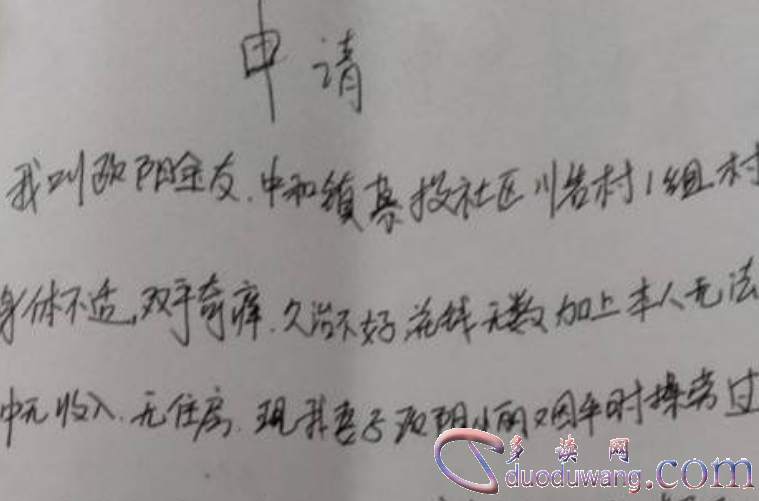 申请
我叫欧阳金友.中和镇 投社区川岩村1组村
身体不适,双手奇痒.久治不好,花钱无数加上本人无法
中无收入.无住房.现我妻子欧阳小丽又因平时操劳过
多读网
duoduwang.com